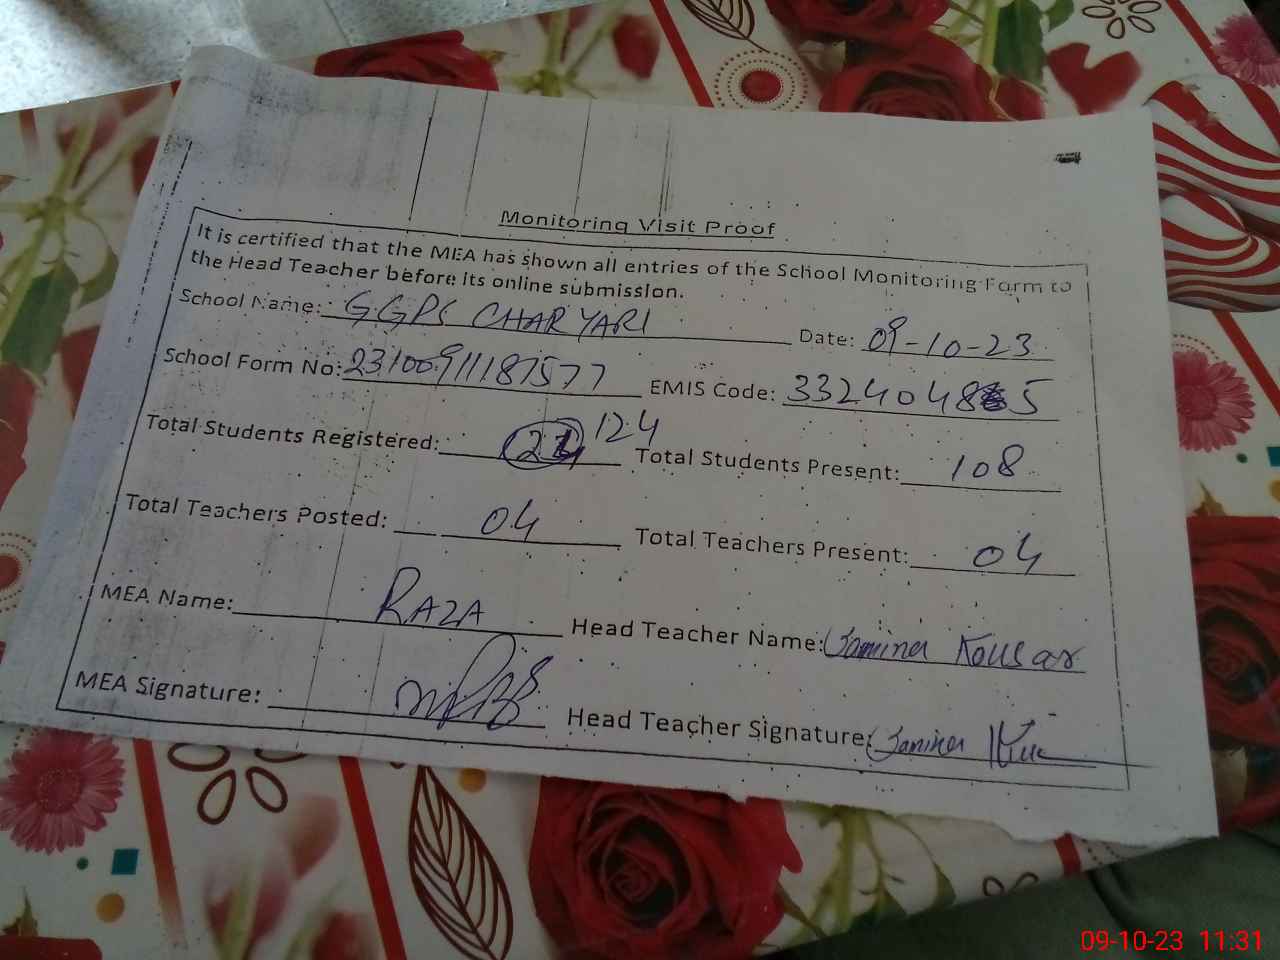 Monitoring Visit Proof
It is certified that the MEA has shown all entries of the School Monitoring Form to
the Head Teacher before its online submission.
School Name: GGPS CHARYARI Date: 09-10-23
School Form No: 231009111187577 EMIS Code: 33240485
Total Students Registered: 124 Total Students Present: 108
Total Teachers Posted: 04 Total Teachers Present: 04
MEA Name: RAZA Head Teacher Name: Jamina Kousar
MEA Signature: Head Teacher Signature: Jamina
09-10-23 11:31